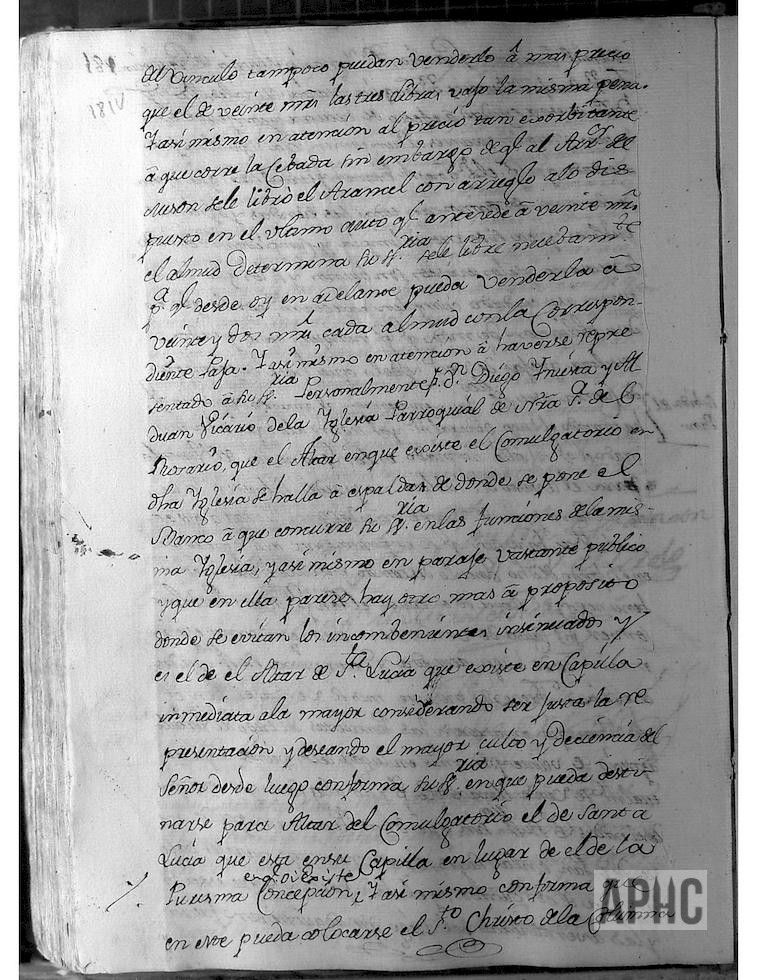 181
181V
del vinculo tampoco puedan venderlo â mas precio
que el de veinte mrs las tres libras, vajo la misma pena.
Y asi mismo en atención al precio tan exorbitante
â que corre la Cebada sin embargo de q.e al Arr.or de
Meson se le librò el Arancel con arreglo a lo dis
puesto en el vltimo auto q.e antecede â veinte mrs
el almud determina su S.ria se le libre nuebam.te
p.a q.e desde oy en adelante pueda venderla â
veinte y dos mrs cada almud con la Correspon-
diente tasa. Y asi mismo en atención â haverse repre
sentado â su S.ria Personalmente p.r D.n Diego Yniesta y Al
Vicario de la Yglesia Parroquial de Ntra S.a de el
Rosario, que el Altar en que existe el Comulgatorio en
dha Yglesia se halla â espaldas de donde se pone el
Banco â que concurre su S.ria en las funciones de la mis-
ma Yglesia, y asi mismo en paraje vastante publico
y que en ella parece, hay otro mas â proposito
donde se evitan los incombenientes insinuados y
es el de el Altar de S.ta Lucia que existe en Capilla
inmediata a la mayor considerando ser justa la re
presentación y deseando el mayor culto y decencia del
Señor desde luego conforma su S.ria en que pueda desti
narse para Altar del Comulgatorio el de Santa
Lucia que esta en su Capilla en lugar de el de la
en q.e oi existe
Purisma Concepcion, Y asi mismo conforma que
en este pueda colocarse el S.to Christo de la Columna
APHC